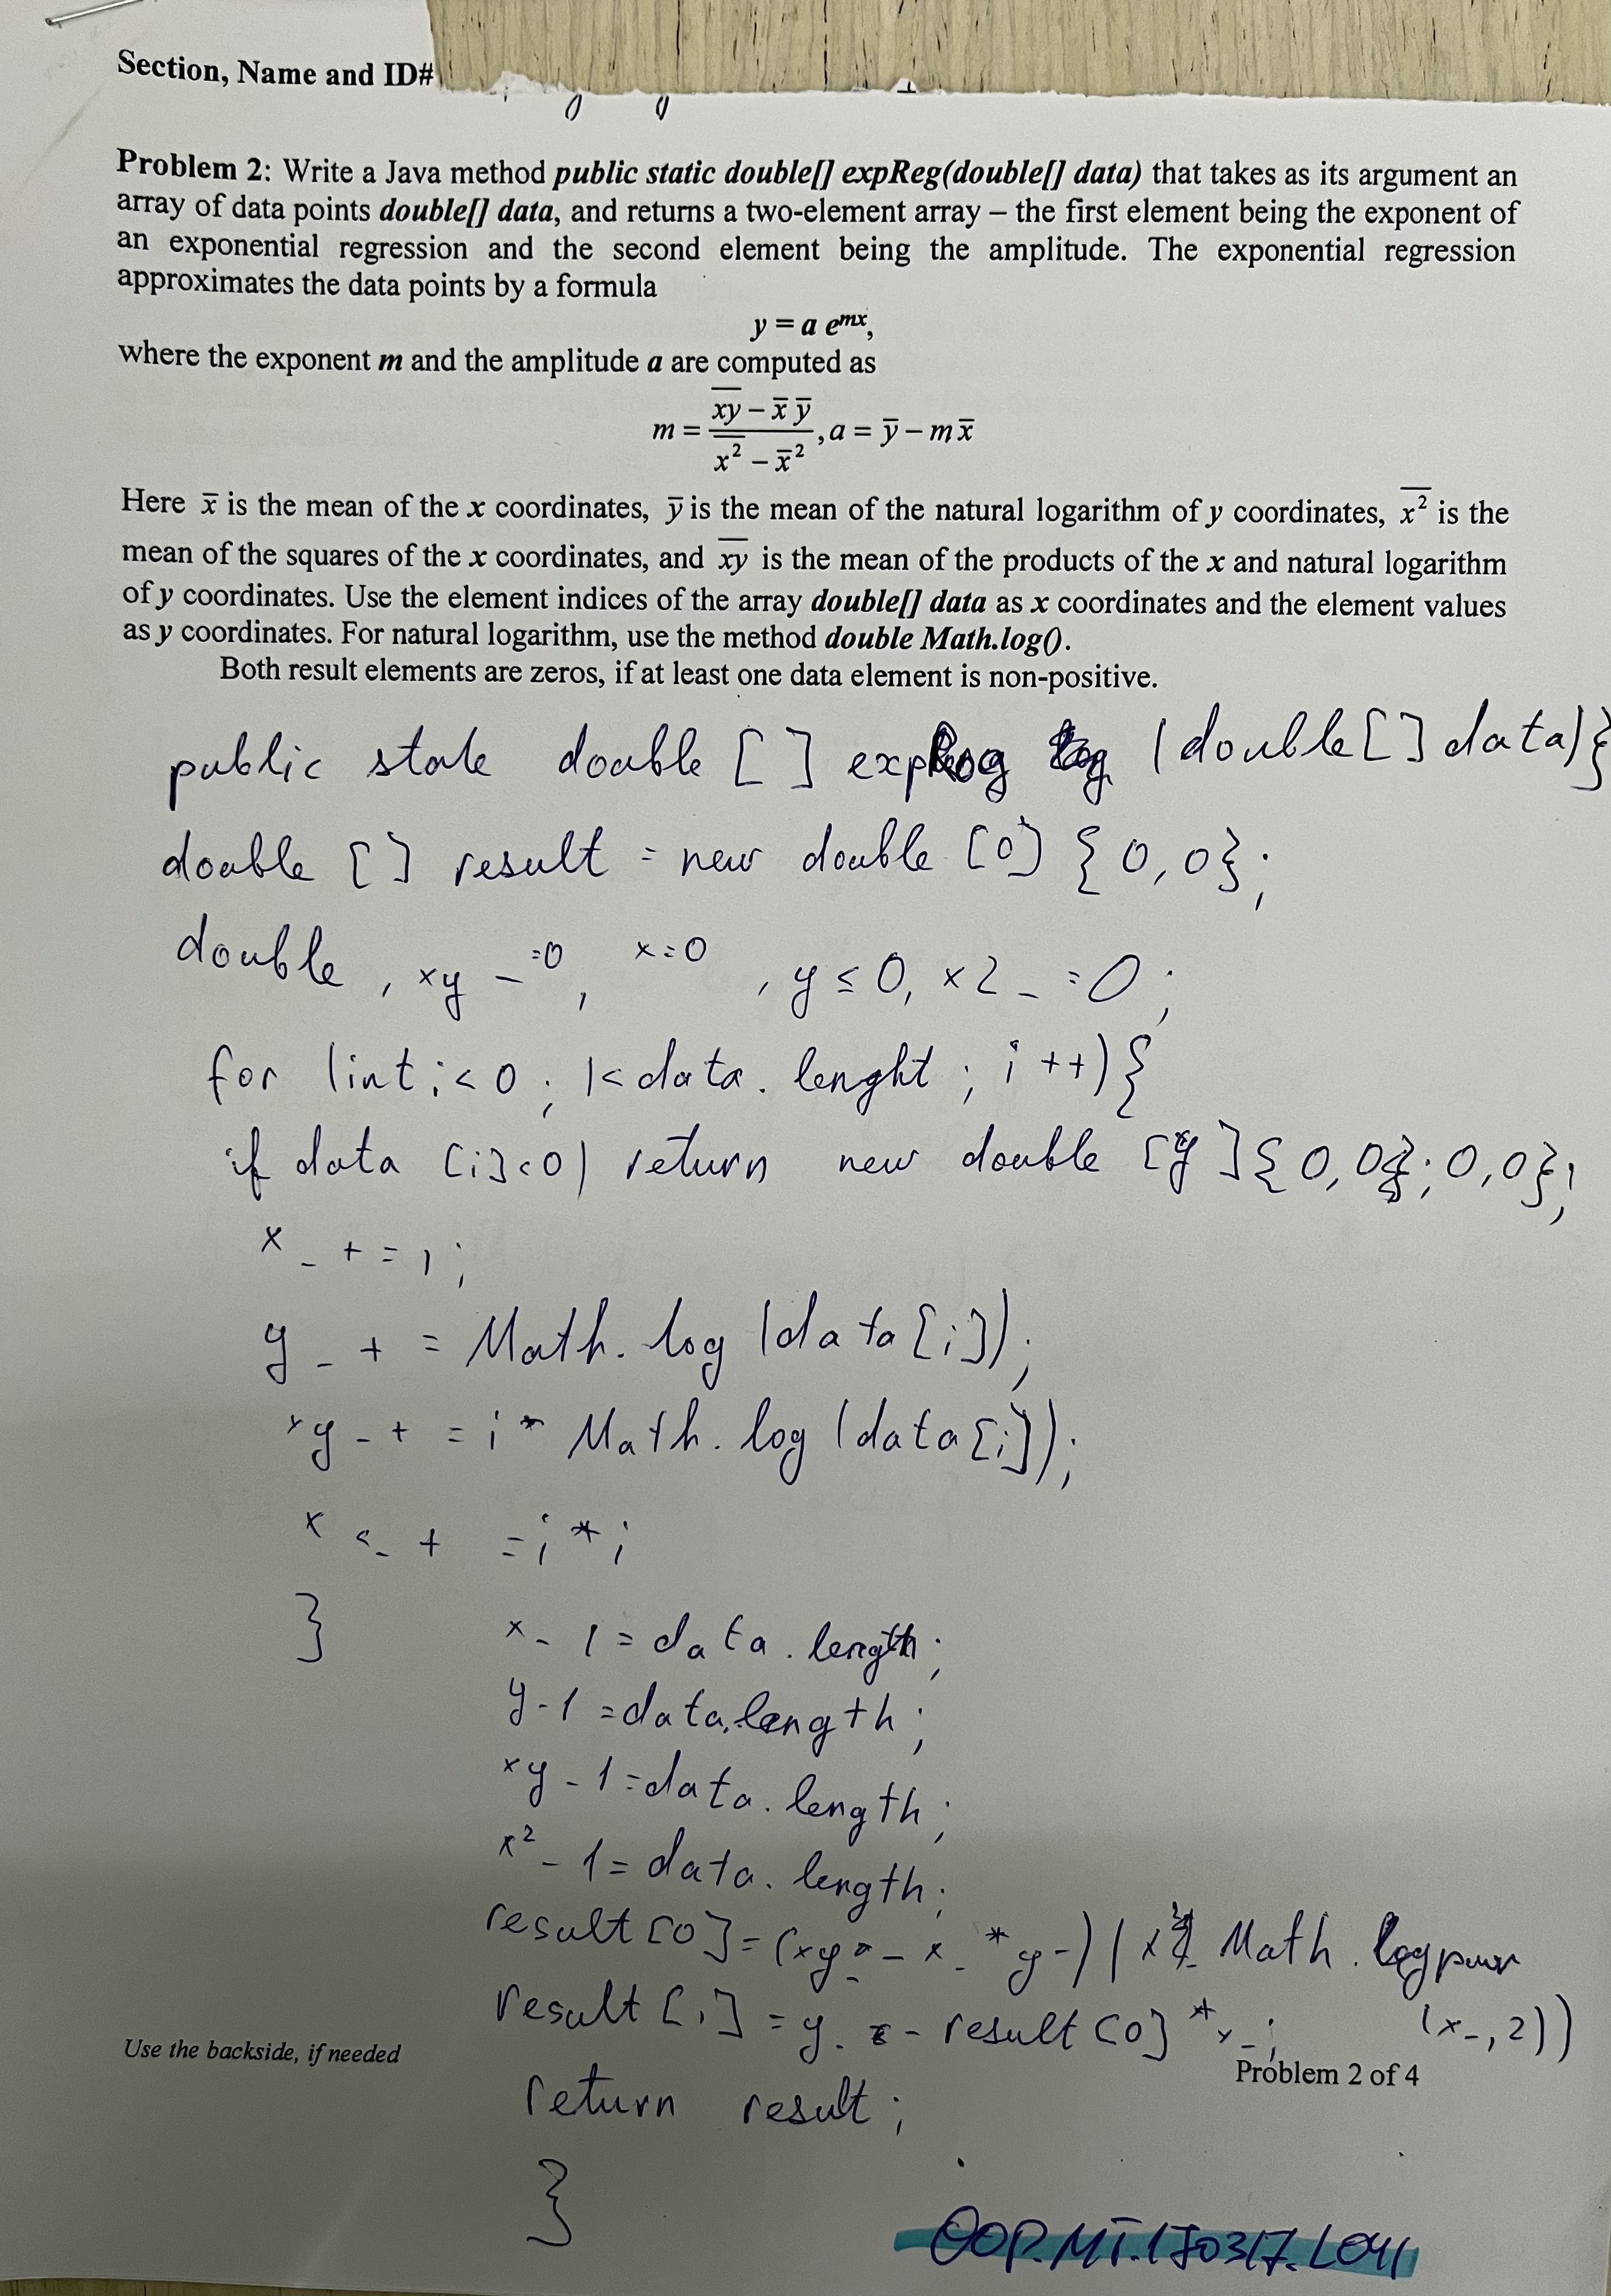 Section, Name and ID#
Problem 2: Write a Java method public static double[] expReg(double[] data) that takes as its argument an
array of data points double[] data, and returns a two-element array – the first element being the exponent of
an exponential regression and the second element being the amplitude. The exponential regression
approximates the data points by a formula
y = a e^{mx},
where the exponent m and the amplitude a are computed as
m = \frac{\overline{xy} - \bar{x} \bar{y}}{\overline{x^2} - \bar{x}^2}, a = \bar{y} - m\bar{x}
Here x̄ is the mean of the x coordinates, ȳ is the mean of the natural logarithm of y coordinates, \overline{x^2} is the
mean of the squares of the x coordinates, and \overline{xy} is the mean of the products of the x and natural logarithm
of y coordinates. Use the element indices of the array double[] data as x coordinates and the element values
as y coordinates. For natural logarithm, use the method double Math.log().
Both result elements are zeros, if at least one data element is non-positive.
public state double [ ] exp (double[ ] data)}
double [ ] result = new double [0] { 0, 0};
double , xy _ =0 , x=0 , y ≤ 0, x2_ =0 ;
for (int i< 0 ; i< data. lenght ; i ++) {
if data [i]<0) return new double [ ]{ 0, 0}; 0, 0};
x _ + = 1 ;
y _ + = Math. log (data[i]);
xy _ + = i * Math. log (data[i]);
x _ + = i * i
} x _ 1 = data . length ;
y - 1 = data. length ;
xy - 1 = data. length ;
x2 _ 1 = data. length ;
result [0] = (xy _ - x _ * y -) | x Math . pow
result [1] = y _ - result [0] * x _ ; (x _ , 2))
Use the backside, if needed
Problem 2 of 4
return result ;
}
OOP.MT.170317.L041